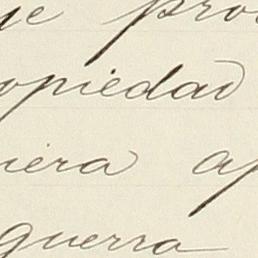 ue pro
opiedad
niera ap
guerra